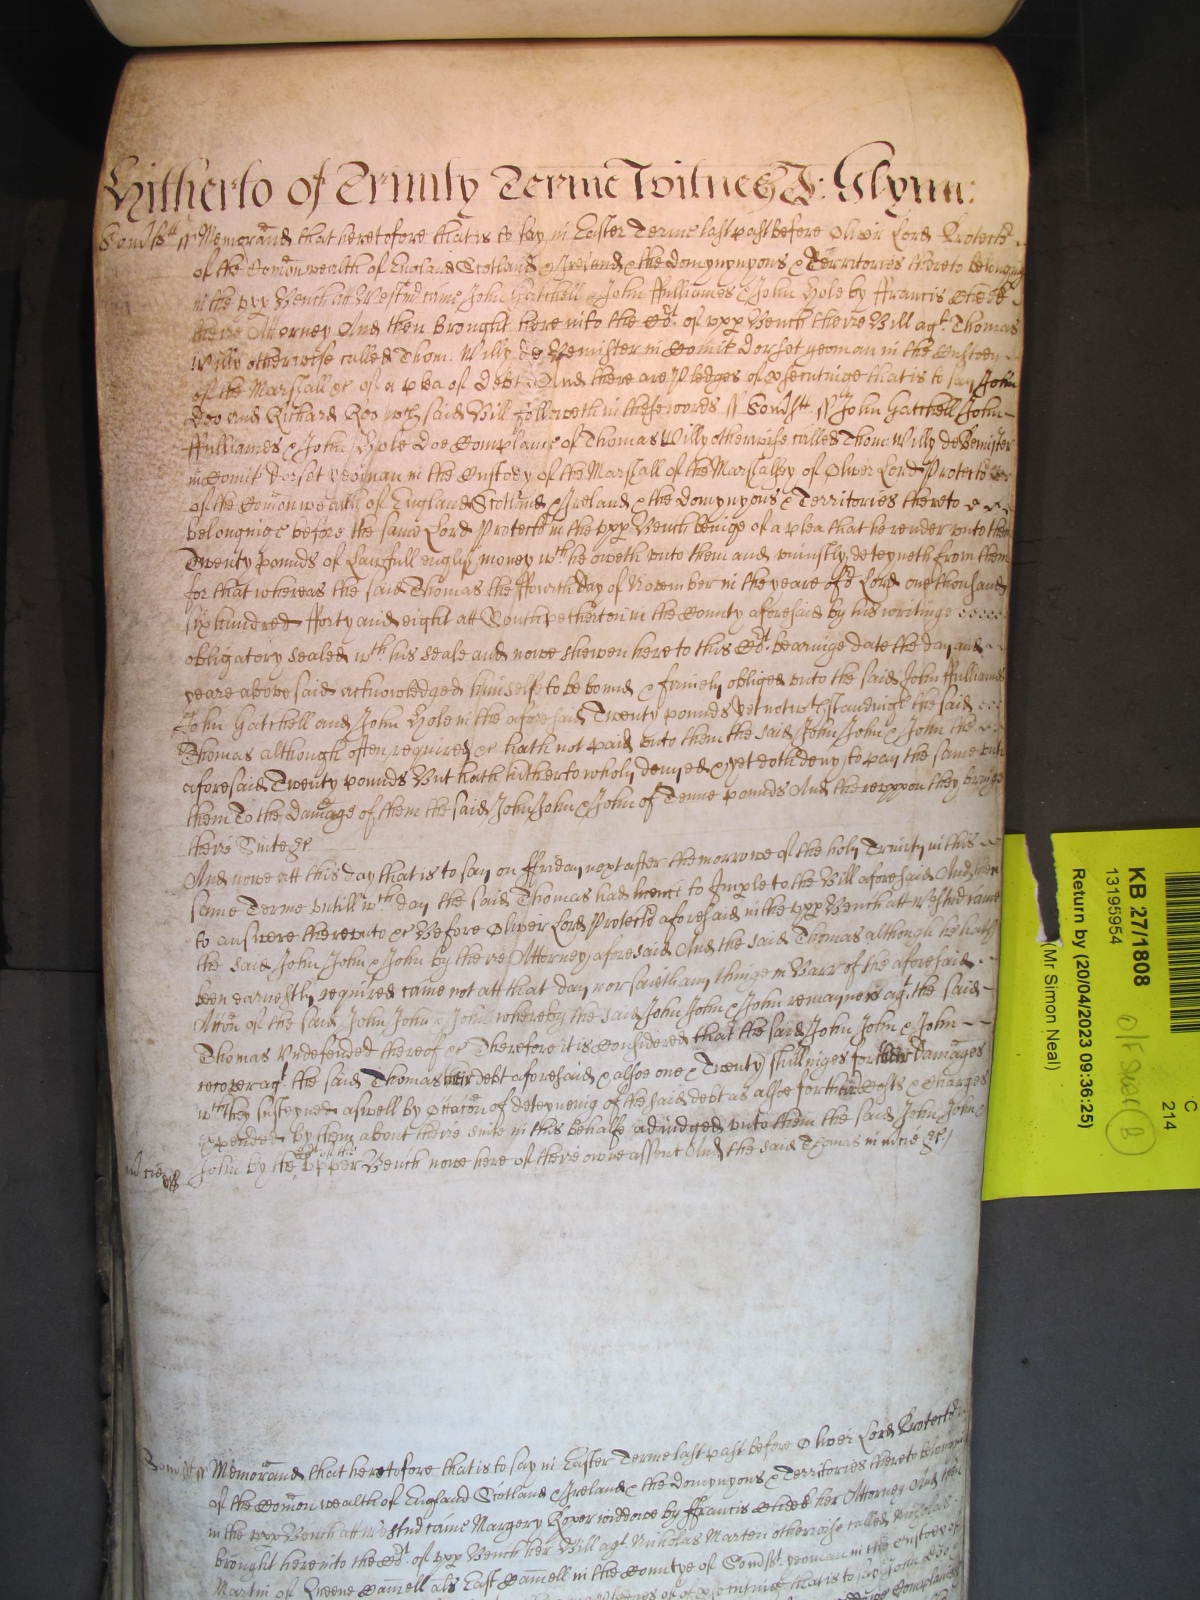 Hitherto of Trinity Terme Witnes J: Glynn:
Somst ss Memorand that heretofore that is to say in Easter Terme last past before Oliver Lord Protectr
of the Comonwealth of England Scotland & Ireland & the domynyons & Territories thereto belonging
in the upp Bench att Westmr came John Gatchell John ffulliames & John Hole by ffrancis
theire Attorney And then brought here into the Cot of upp Bench theire Bill agt Thomas
Willy otherwise called Thom. Willy de Bemister in Comit Dorset yeoman in the Custody
of the Marshall &c of a plea of debt And there are Pledges of prosecutinge that is to say John
Doo and Richard Roo wch said Bill followeth in these words ss Somst ss John Gatchell John
ffulliames & John Hole doe Complaine of Thomas Willy otherwise called Thom Willy de Bemister
in Comit Dorset yeoman in the Custody of the Marshall of the Marshalsey of Oliver Lord Protectr
of the Comonwealth of England Scotland & Ireland & the domynyons & Territories thereto
belonginge before the same Lord Protectr in the upp Bench beinge of a plea that he render unto them
Twenty pounds of Lawfull english money wch he oweth unto them and uniustly deteyneth from them
for that whereas the said Thomas the ffowrth day of November in the yeare of or Lord one thousand
six hundred fforty and eight att Southpetherton in the County aforesaid by his writinge
obligatory sealed wth his seale and nowe shewen here to this Cot bearinge date the day and
yeare above said acknowledged himselfe to be bound & firmely obliged unto the said John ffulliames
John Gatchell and John Hole in the aforesaid Twenty pounds Yet notwthstandinge the said
Thomas although often required &c hath not paid unto them the said John John & John the
aforesaid Twenty pounds But hath hitherto wholy denyed & yet doth deny to pay the same unto
them To the damage of them the said John John & John of Tenne pounds And thereuppon they bringe
theire Suite &c
And nowe att this day that is to say on ffriday next after the morrowe of the holy Trinity in this
same Terme untill wch day the said Thomas had licence to Imple to the Bill aforesaid And then
to answere thereunto &c Before Oliver Lord Protectr aforesaid in the upp Bench att Westmr came
the said John John & John by theire Attorney aforesaid And the said Thomas although he hath
been earnestly required came not att that day nor saith any thinge in Barr of the aforesaid
Accon of the said John John & John whereby the said John John & John remayneth agt the said
Thomas Undefended thereof &c Therefore it is Considered that the said John John & John
recover agt the said Thomas their debt aforesaid & alsoe one & Twenty shillinges for their Damages
wch they susteyned aswell by Occacon of deteyneing of the said debt as alsoe for their Costs & Charges
expended by them about theire suite in this behalfe adiudged unto them the said John John &
John by the Cot of the upper Bench nowe here of theire owne assent And the said Thomas in mcie &c
mcie
Somst ss Memorand that heretofore that is to say in Easter Terme last past before Oliver Lord Protectr
of the Comonwealth of England Scotland & Ireland & the domynyons & Territories thereto belonging
in the upp Bench att Westmr came Margery Roper widdowe by ffrancis her Attorney And then
brought here into the Cot of upp Bench her Bill agt Nicholas Marten otherwise called Nicholas
Martin of Queene Camell als East Camell in the Countye of Somst yeoman in the Custody of
that is to say John Doo
Complaineth
KB 27/1808
13195954
Return by (20/04/2023 09:36:25)
(Mr Simon Neal)
C
214
B